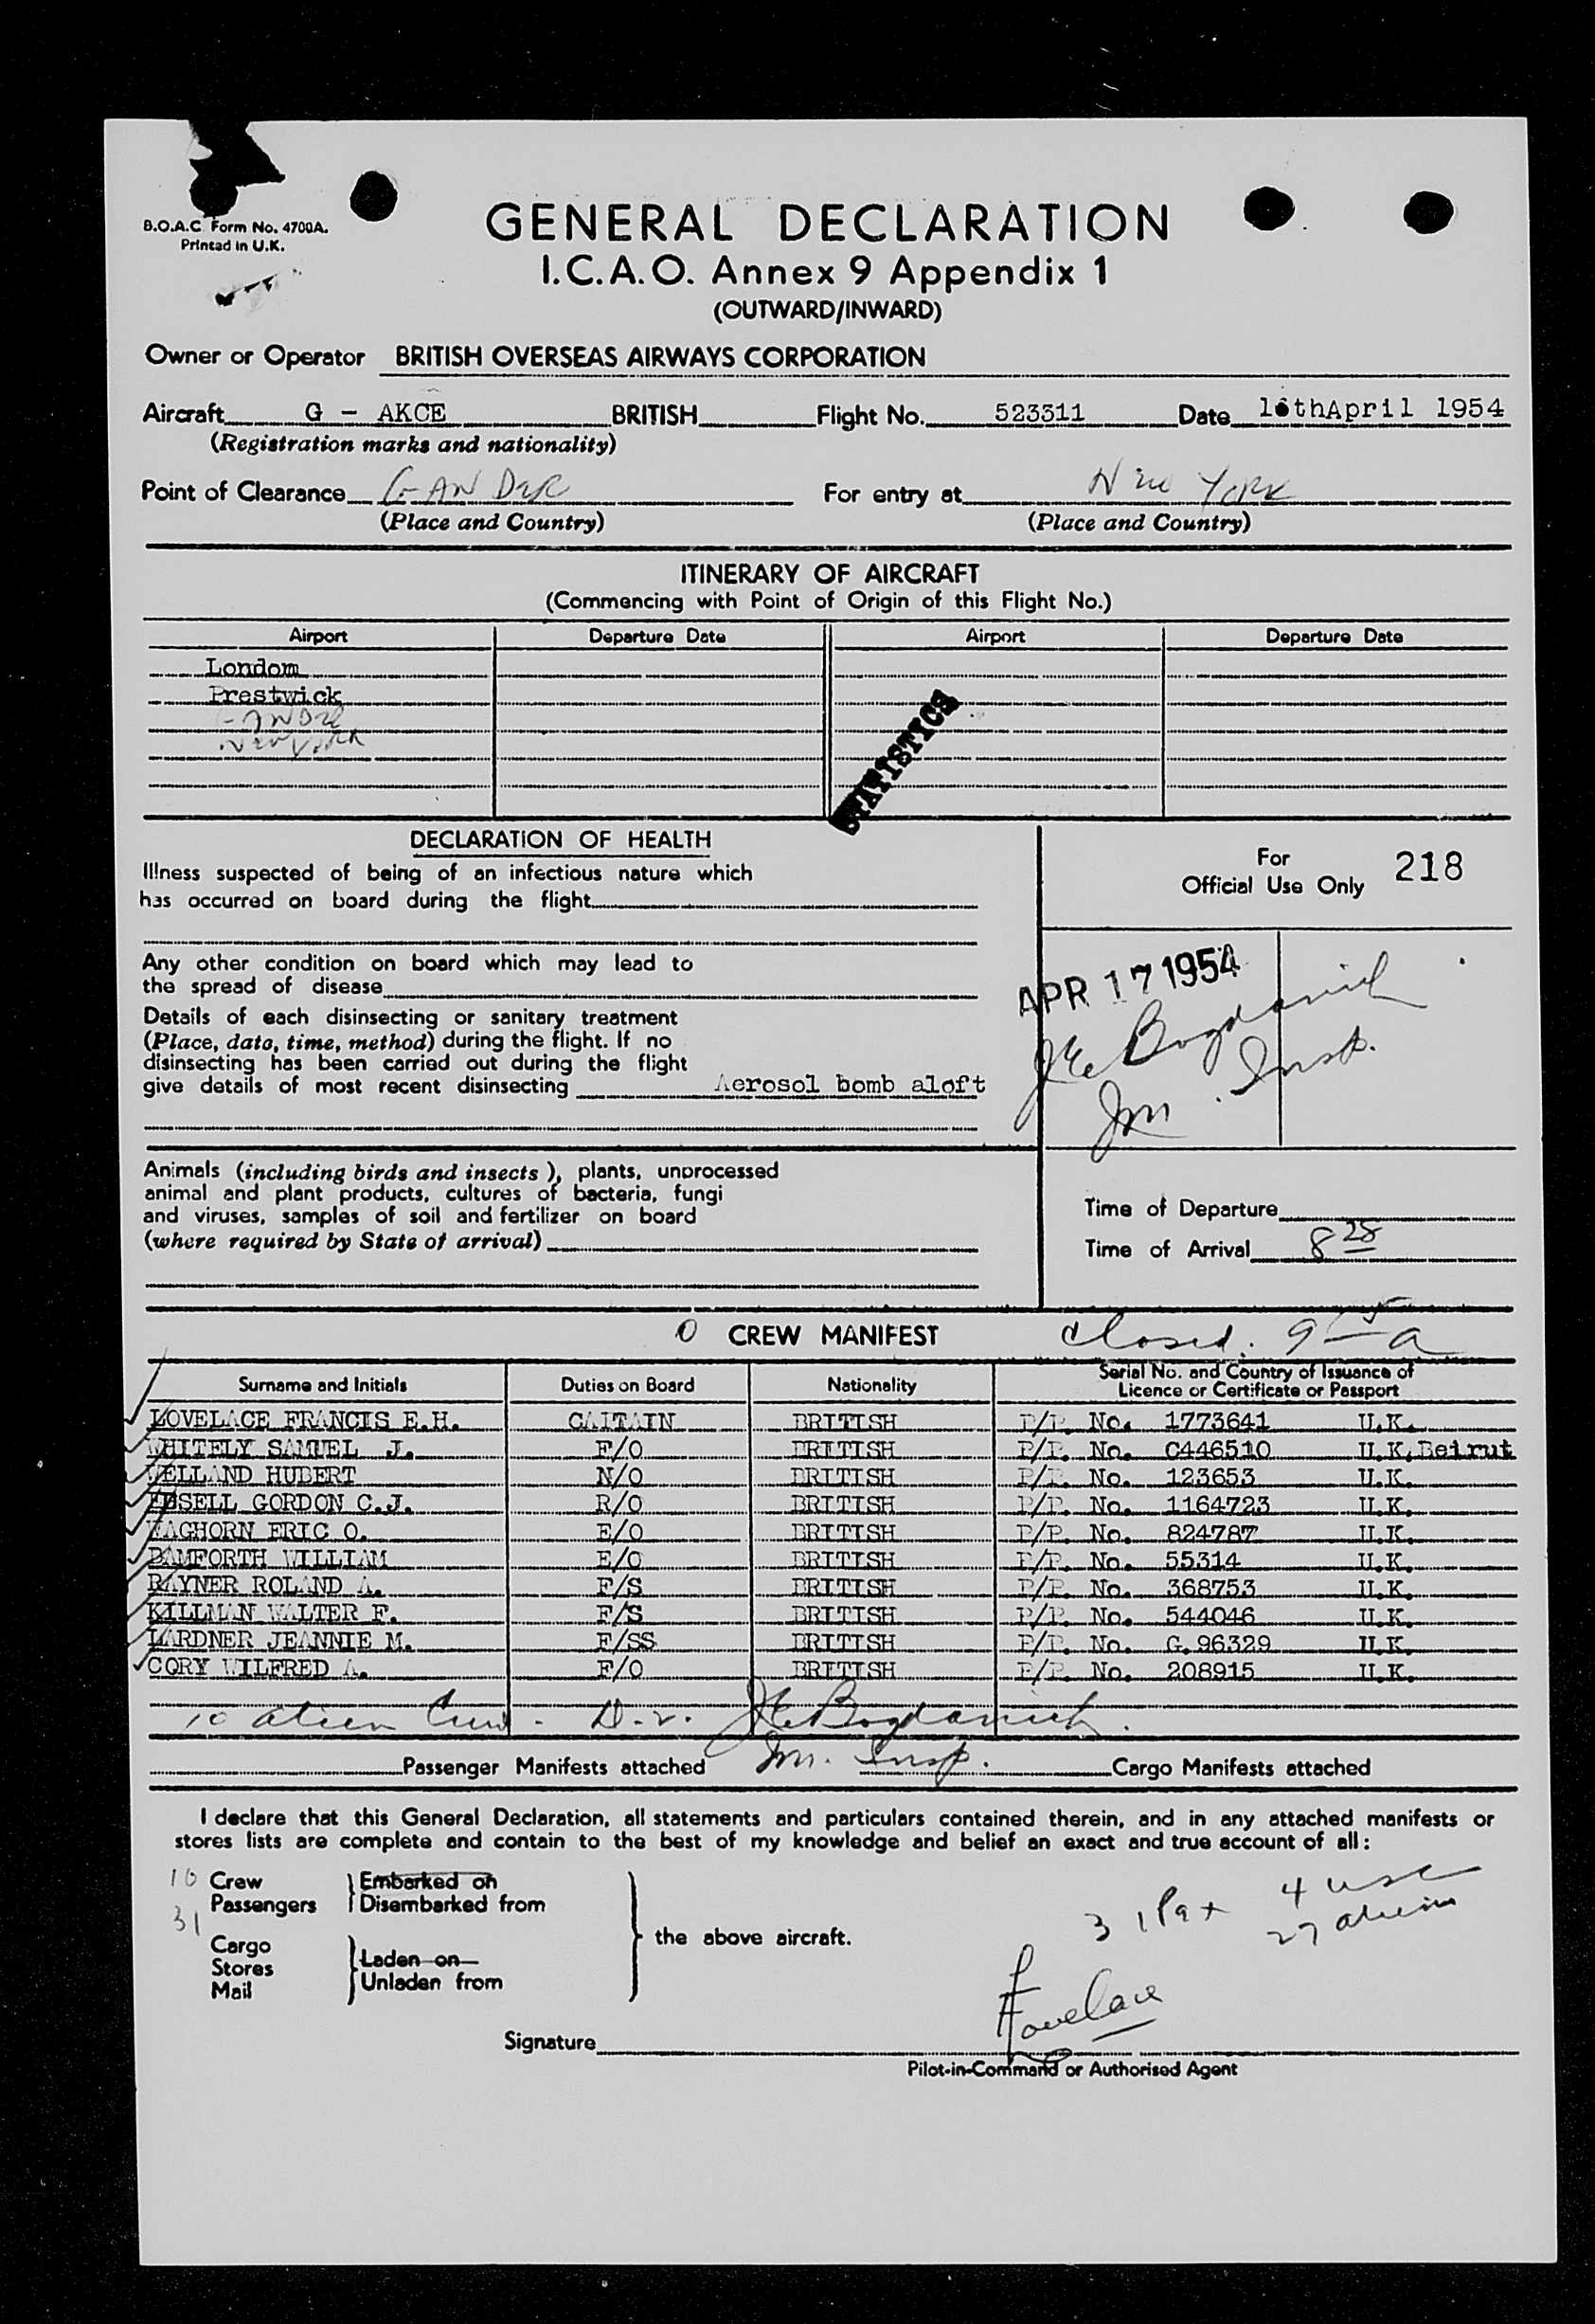 B.O.A.C. Form No. 4700A.
Printed in U.K.
GENERAL DECLARATION
I.C.A.O. Annex 9 Appendix 1
(OUTWARD/INWARD)
Owner or Operator BRITISH OVERSEAS AIRWAYS CORPORATION
Aircraft G - AKCE BRITISH Flight No. 523311 Date 16thApril 1954
(Registration marks and nationality)
Point of Clearance GANDER For entry at New York
(Place and Country) (Place and Country)
ITINERARY OF AIRCRAFT
(Commencing with Point of Origin of this Flight No.)
Airport Departure Date Airport Departure Date
Londom
Prestwick
GANDER
NEW YORK
STATISTICS
DECLARATION OF HEALTH
Illness suspected of being of an infectious nature which
has occurred on board during the flight
For
Official Use Only 218
Any other condition on board which may lead to
the spread of disease
APR 17 1954
Details of each disinsecting or sanitary treatment
(Place, date, time, method) during the flight. If no
disinsecting has been carried out during the flight
give details of most recent disinsecting Aerosol bomb aloft
Bogdanich
Im. Insp.
Animals (including birds and insects), plants, unprocessed
animal and plant products, cultures of bacteria, fungi
and viruses, samples of soil and fertilizer on board
(where required by State of arrival)
Time of Departure
Time of Arrival 8 28
0 CREW MANIFEST closed. 9 15 a
Surname and Initials Duties on Board Nationality Serial No. and Country of Issuance of
Licence or Certificate or Passport
LOVELACE FRANCIS E.H. CAPTAIN BRITISH P/P. No. 1773641 U.K.
WHITELY SAMUEL J. F/O BRITISH P/P. No. C446510 U.K.Beirut
WELLAND HUBERT N/O BRITISH P/P. No. 123653 U.K.
GORDON C.J. R/O BRITISH P/P. No. 1164723 U.K.
WAGHORN ERIC O. E/O BRITISH P/P. No. 824787 U.K.
BAMFORTH WILLIAM E/O BRITISH P/P. No. 55314 U.K.
RAYNER ROLAND A. F/S BRITISH P/P. No. 368753 U.K.
KILLMAN WALTER F. F/S BRITISH P/P. No. 544046 U.K.
LARDNER JEANNIE M. F/SS BRITISH P/P. No. G.96329 U.K.
CORY WILFRED A. F/O BRITISH P/P. No. 208915 U.K.
10 alien Crew. Bogdanich
Im. Insp.
Passenger Manifests attached Cargo Manifests attached
I declare that this General Declaration, all statements and particulars contained therein, and in any attached manifests or
stores lists are complete and contain to the best of my knowledge and belief an exact and true account of all:
10 Crew Embarked on
31 Passengers Disembarked from
the above aircraft.
Cargo
Stores Laden on
Mail Unladen from
31 Pax 4 usc
27 aliens
Lovelace
Signature
Pilot-in-Command or Authorised Agent